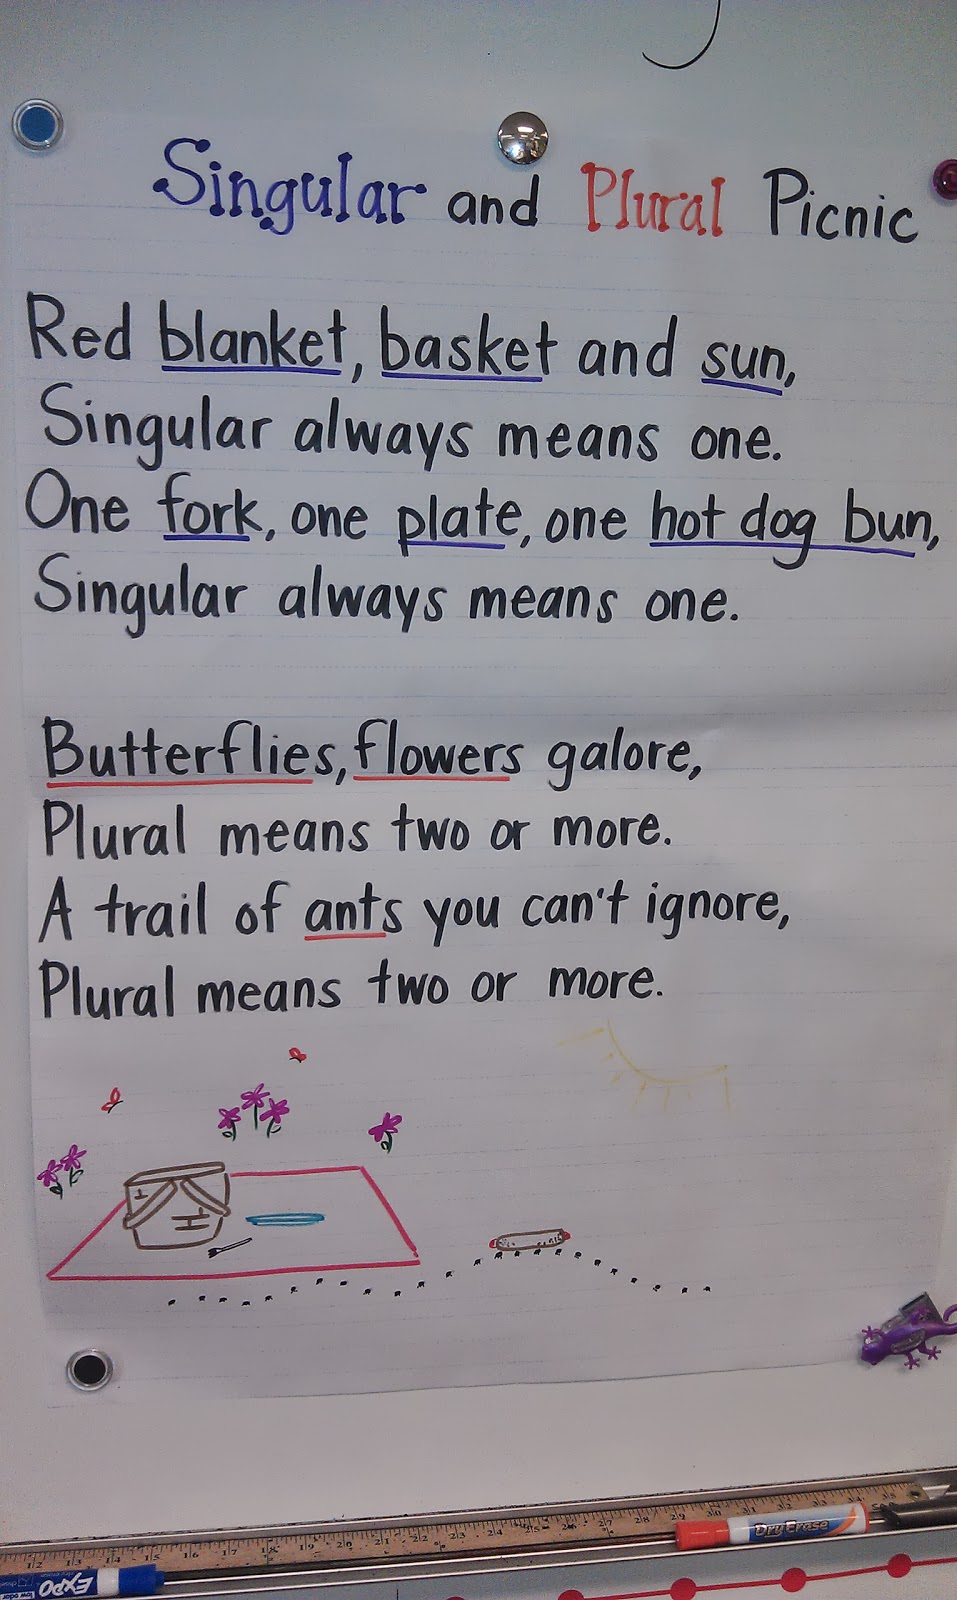 Singular and Plural Picnic
Red blanket, basket and sun,
Singular always means one.
One fork, one plate, one hot dog bun,
Singular always means one.
Butterflies, flowers galore,
Plural means two or more.
A trail of ants you can't ignore,
Plural means two or more.
Dry Erase
EXPO